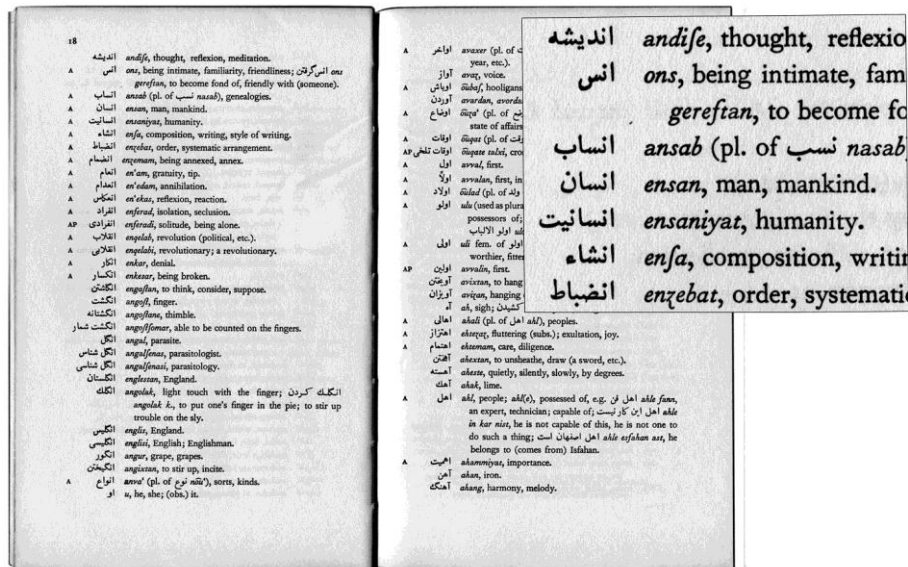 18
اندیشه andiʃe, thought, reflexion, meditation.
A انس ons, being intimate, familiarity, friendliness; انس گرفتن ons
gereftan, to become fond of, friendly with (someone).
A انساب ansab (pl. of نسب nasab), genealogies.
A انسان ensan, man, mankind.
A انسانیت ensaniyat, humanity.
A انشاء enʃa, composition, writing, style of writing.
A انضباط enʒebat, order, systematic arrangement.
A انضمام enʒemam, being annexed, annex.
A انعام en'am, gratuity, tip.
A انعدام en'edam, annihilation.
A انعکاس en'ekas, reflexion, reaction.
A انفراد enferad, isolation, seclusion.
AP انفرادی enferadi, solitude, being alone.
A انقلاب enqelab, revolution (political, etc.).
A انقلابی enqelabi, revolutionary; a revolutionary.
A انکار enkar, denial.
A انکسار enkesar, being broken.
انگاشتن engaʃtan, to think, consider, suppose.
انگشت angoʃt, finger.
انگشتانه angoʃtane, thimble.
انگشت شمار angoʃtʃomar, able to be counted on the fingers.
انگل angal, parasite.
انگل شناس angalʃenas, parasitologist.
انگل شناسی angalʃenasi, parasitology.
انگلستان englestan, England.
انگلک angolak, light touch with the finger; انگلک کردن
angolak k., to put one's finger in the pie; to stir up
trouble on the sly.
انگلیس englis, England.
انگلیسی englisi, English; Englishman.
انگور angur, grape, grapes.
انگیختن angixtan, to stir up, incite.
A انواع anva' (pl. of نوع nōu'), sorts, kinds.
او u, he, she; (obs.) it.
A اواخر avaxer (pl. of
year, etc.).
آواز avaʒ, voice.
A اوباش ōubaʃ, hooligans
آوردن avardan, avorda
A اوضاع ōuʒa' (pl. of
state of affairs
A اوقات ōuqat (pl. of
AP اوقات تلخی ōuqate talxi, cro
A اول avval, first.
A اولاً avvalan, first, in
A اولاد ōulad (pl. of ولد
A اولو ulu (used as plura
possessors of;
اولو الالباب
A اولی uli fem. of
worthier, fitte
AP اولین avvalin, first.
آویختن avixtan, to hang
آویزان aviʒan, hanging
آه ah, sigh; کشیدن
A اهالی ahali (pl. of اهل ahl), peoples.
A اهتزاز ehteʒaʒ, fluttering (subs.); exultation, joy.
A اهتمام ehtemam, care, diligence.
آهختن ahextan, to unsheathe, draw (a sword, etc.).
آهسته aheste, quietly, silently, slowly, by degrees.
آهک ahak, lime.
A اهل ahl, people; ahl(e), possessed of, e.g. اهل فن ahle fann,
an expert, technician; capable of; اهل این کار نیست ahle
in kar nist, he is not capable of this, he is not one to
do such a thing; اهل اصفهان است ahle esfahan ast, he
belongs to (comes from) Isfahan.
A اهمیت ahammiyat, importance.
آهن ahan, iron.
آهنگ ahang, harmony, melody.
اندیشه andiʃe, thought, reflexio
انس ons, being intimate, fam
gereftan, to become fo
انساب ansab (pl. of نسب nasab
انسان ensan, man, mankind.
انسانیت ensaniyat, humanity.
انشاء enʃa, composition, writin
انضباط enʒebat, order, systemati